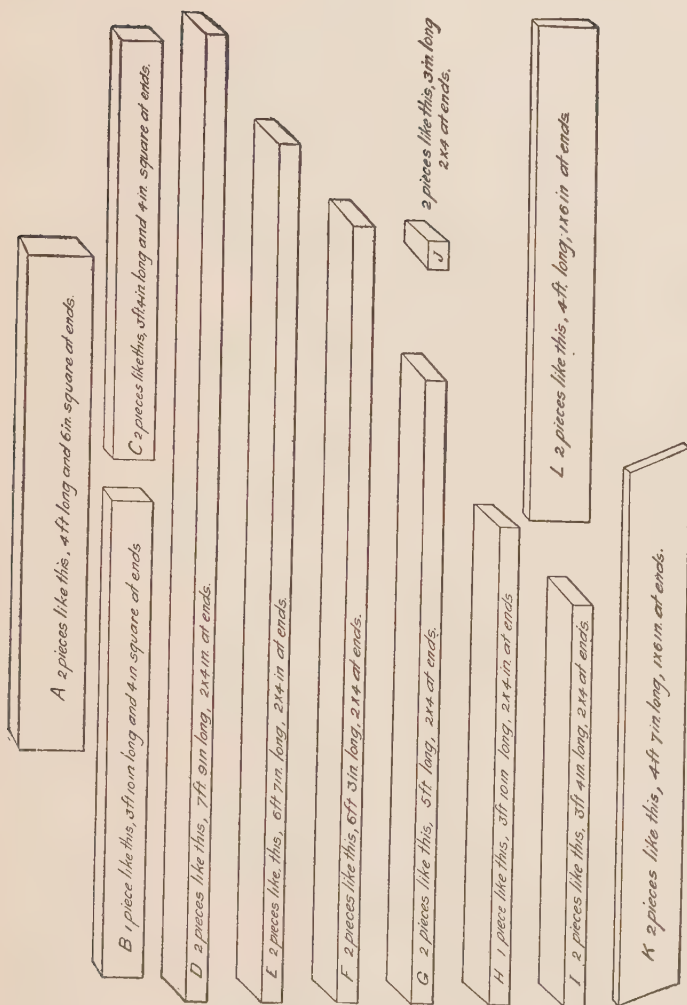 A 2 pieces like this, 4 ft long and 6 in. square at ends.
B 1 piece like this, 3 ft 10 in long and 4 in square at ends
C 2 pieces like this, 3 ft 4 in long and 4 in. square at ends.
D 2 pieces like this, 7 ft 9 in long, 2x4 in. at ends.
E 2 pieces like this, 6 ft 7 in. long, 2x4 in at ends.
F 2 pieces like this, 6 ft 3 in long, 2x4 at ends.
G 2 pieces like this, 5 ft long, 2x4 at ends.
J
2 pieces like this, 3 in long
2x4 at ends.
H 1 piece like this, 3 ft 10 in long, 2x4 in. at ends
I 2 pieces like this, 3 ft 4 in long, 2x4 at ends.
L 2 pieces like this, 4 ft long, 1x6 in at ends.
K 2 pieces like this, 4 ft 7 in. long, 1x6 in. at ends.